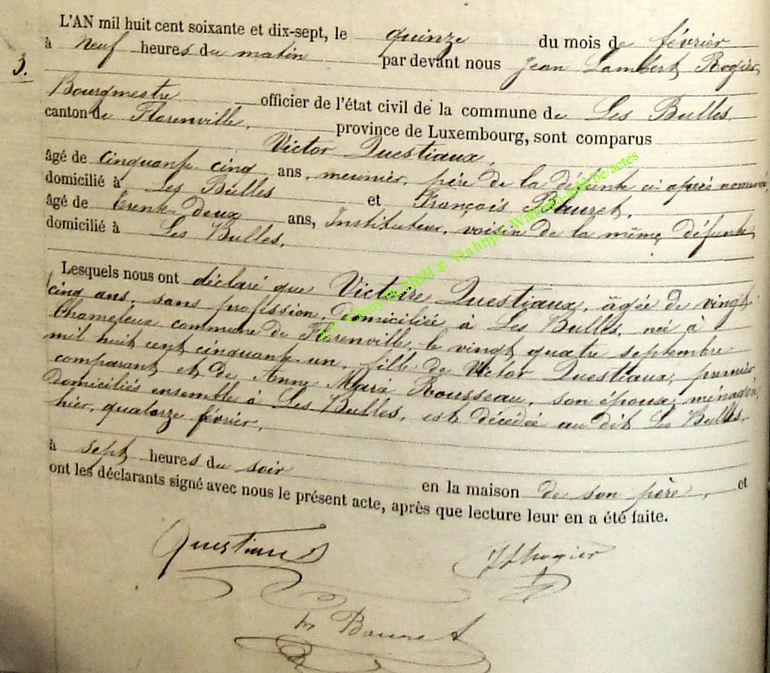 L'AN mil huit cent soixante et dix-sept, le quinze du mois de février
3. à Neuf heures du matin par devant nous Jean Lambert Rogier,
Bourgmestre officier de l'état civil de la commune de Les Bulles
canton de Florenville, province de Luxembourg, sont comparus
Victor Questiaux,
âgé de cinquante cinq ans, meunier, père de la défunte ci après nommée
domicilié à Les Bulles et François
âgé de trente-deux ans, Instituteur, voisin de la même défunte
domicilié à Les Bulles.
Lesquels nous ont déclaré que Victoire Questiaux, âgée de vingt
cinq ans, sans profession, domiciliée à Les Bulles, née à
Chameleux commune de Florenville, le vingt quatre septembre
mil huit cent cinquante un, fille de Victor Questiaux, premier
comparant et de Anne Marie Rousseau, son épouse, ménagère,
domiciliés ensemble à Les Bulles, est décédée au dit Les Bulles,
hier, quatorze février,
à sept heures du soir en la maison de son père, et
ont les déclarants signé avec nous le présent acte, après que lecture leur en a été faite.
Questiaux JLRogier